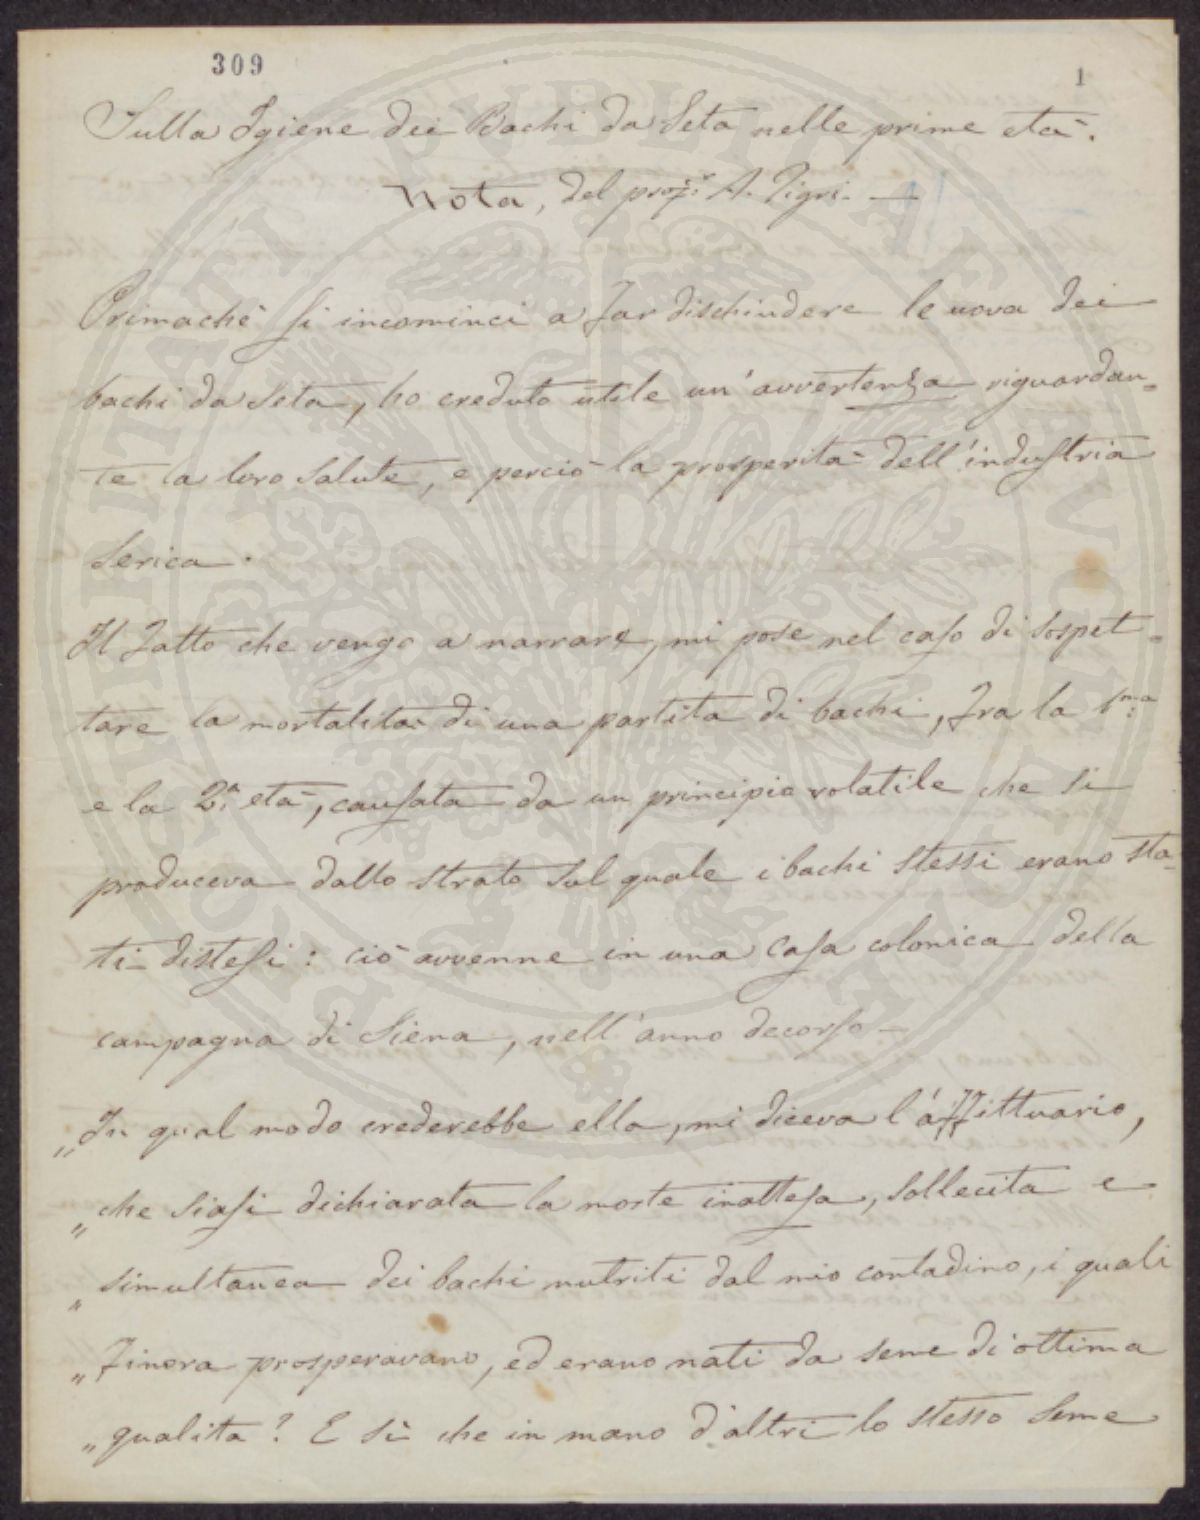 309
1
Sulla Igiene dei Bachi da Seta nelle prime età.
Nota, del prof.r A. Tigri. —
Primachè si incominci a far dischiudere le uova dei
bachi da Seta, ho creduto utile un'avvertenza riguardan=
te la loro Salute, e perciò la prosperità dell'industria
Serica.
Il fatto che vengo a narrare, mi pose nel caso di sospet=
tare la mortalità di una partita di bachi, fra la 1.ma
e la 2.a età, causata da un principio volatile che si
produceva dallo strato sul quale i bachi stessi erano sta=
ti distesi: ciò avvenne in una Casa colonica della
campagna di Siena, nell'anno decorso —
„In qual modo crederebbe ella, mi diceva l'affittuario,
„che siasi dichiarata la morte inattesa, sollecita e
„simultanea dei bachi nutriti dal mio contadino, i quali
„finora prosperavano, ed erano nati da seme di ottima
„qualita? E sì che in mano d'altri lo stesso seme
PUBLICAE FELICITATI